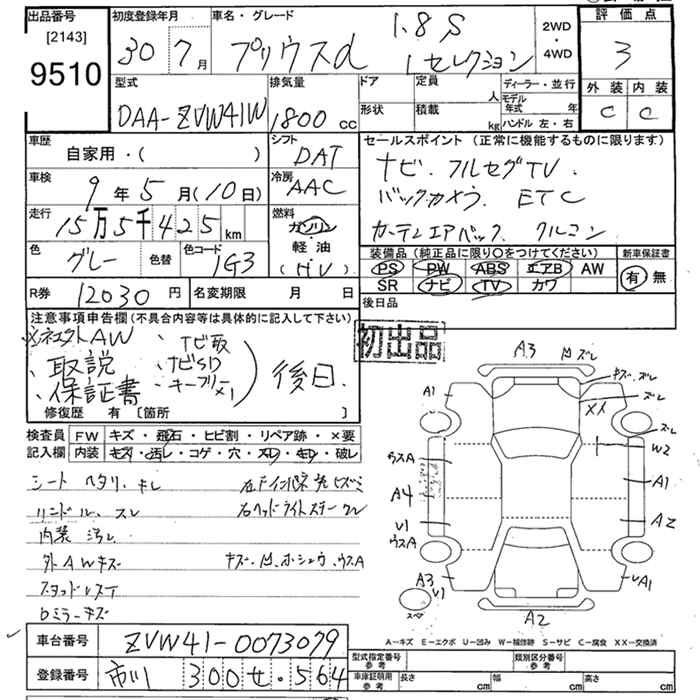 出品番号 初度登録年月 車名・グレード 評価点
[2143] 1.8S 2WD
9510 30年7月 プリウスα Lセレクション ・4WD 3
型式 排気量 ドア 定員 人 ディーラー・並行 外装 内装
DAA-ZVW41W 1800cc 形状 積載 kg モデル年式 年 ハンドル 左・右 C C
車歴 シフト セールスポイント (正常に機能するものに限ります)
自家用・( ) DAT ナビ.フルセグTV.
車検 冷房 バックカメラ. ETC
9年5月(10日) AAC
走行 燃料 カーテンエアバック. クルコン
15万5千425km ガソリン
軽油 装備品 (純正品に限り○をつけてください) 新車保証書
色 色替 色コード (HV) PS PW ABS エアB AW 有 無
グレー 1G3 SR ナビ TV カワ
R券 12030円 名変期限 月 日 後日品
注意事項申告欄 (不具合内容等は具体的に記入して下さい) 初出品
AW ナビ取
取説 ナビSD 後日.
保証書 キーフリー×1
修復歴 有 [箇所 ]
検査員 FW キズ・飛石・ヒビ割・リペア跡・×要
記入欄 内装 キズ・汚レ・コゲ・穴・スレ・キレ・破レ
シート ヘタリ.キレ
ハンドル.スレ 右ヘッドライトステークレ
内装 汚レ
外AWキズ キズ.凹.ホシュウ.ウスA
スタッドレスT
Dミラーキズ
A3 凹 ズレ
キズ.ズレ
A1 ズレ
XX
ズレ
ウスA W2
A4 A1
V1 A2
ウスA
A3 V1 A1
スペ A2
A-キズ E-エクボ U-凹み W-補修跡 S-サビ C-腐食 XX-交換済
車台番号 ZVW41-0073079 型式指定番号 参考 類別区分番号 参考
登録番号 市川 300 せ・564 車庫証明用 参考 長さ cm 幅 cm 高さ cm